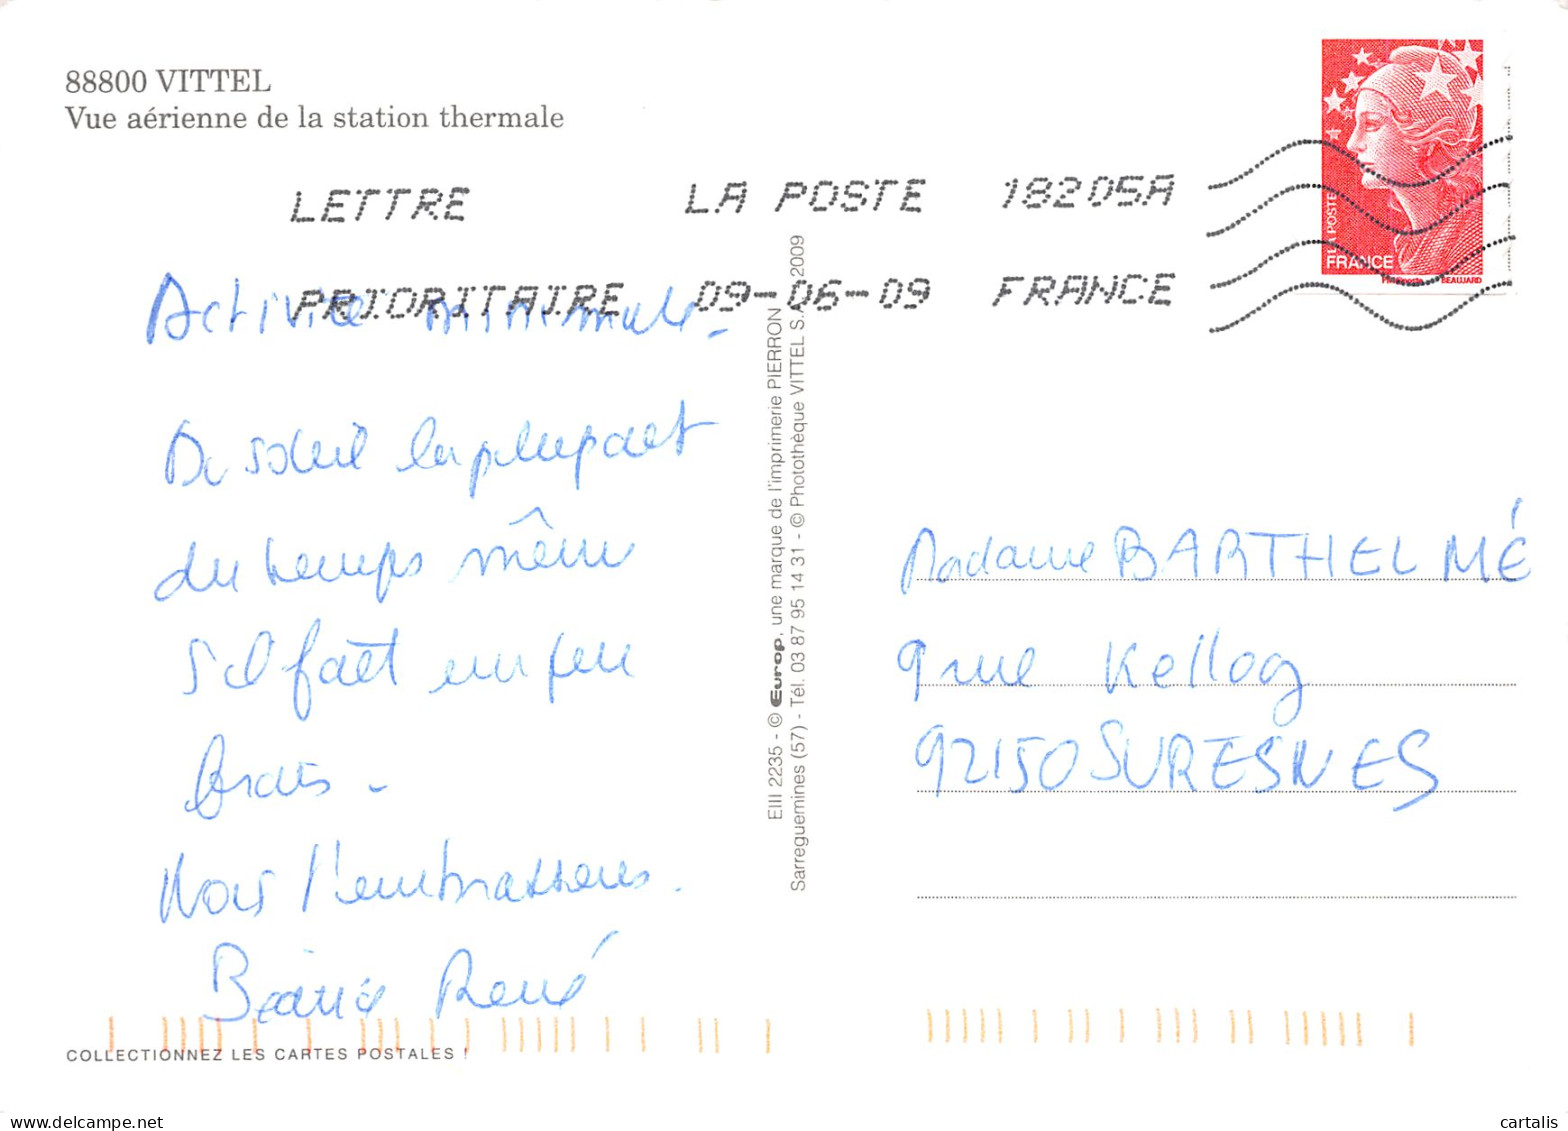 88800 VITTEL
Vue aérienne de la station thermale
LETTRE LA POSTE 18205A
PRIORITAIRE 09-06-09 FRANCE
LA POSTE
FRANCE
BEAUJARD
Activité minimale.
Du soleil la plupart
du temps même
s'il fait un peu
frais -
Nous t'embrassons.
René
EIII 2235 - © Europ, une marque de l'imprimerie PIERRON
Sarreguemines (57) - Tél. 03 87 95 14 31 - © Photothèque VITTEL S.A. 2009
Madame BARTHELMÉ
9 rue Kellog
92150 SURESNES
COLLECTIONNEZ LES CARTES POSTALES !
delcampe.net
cartalis